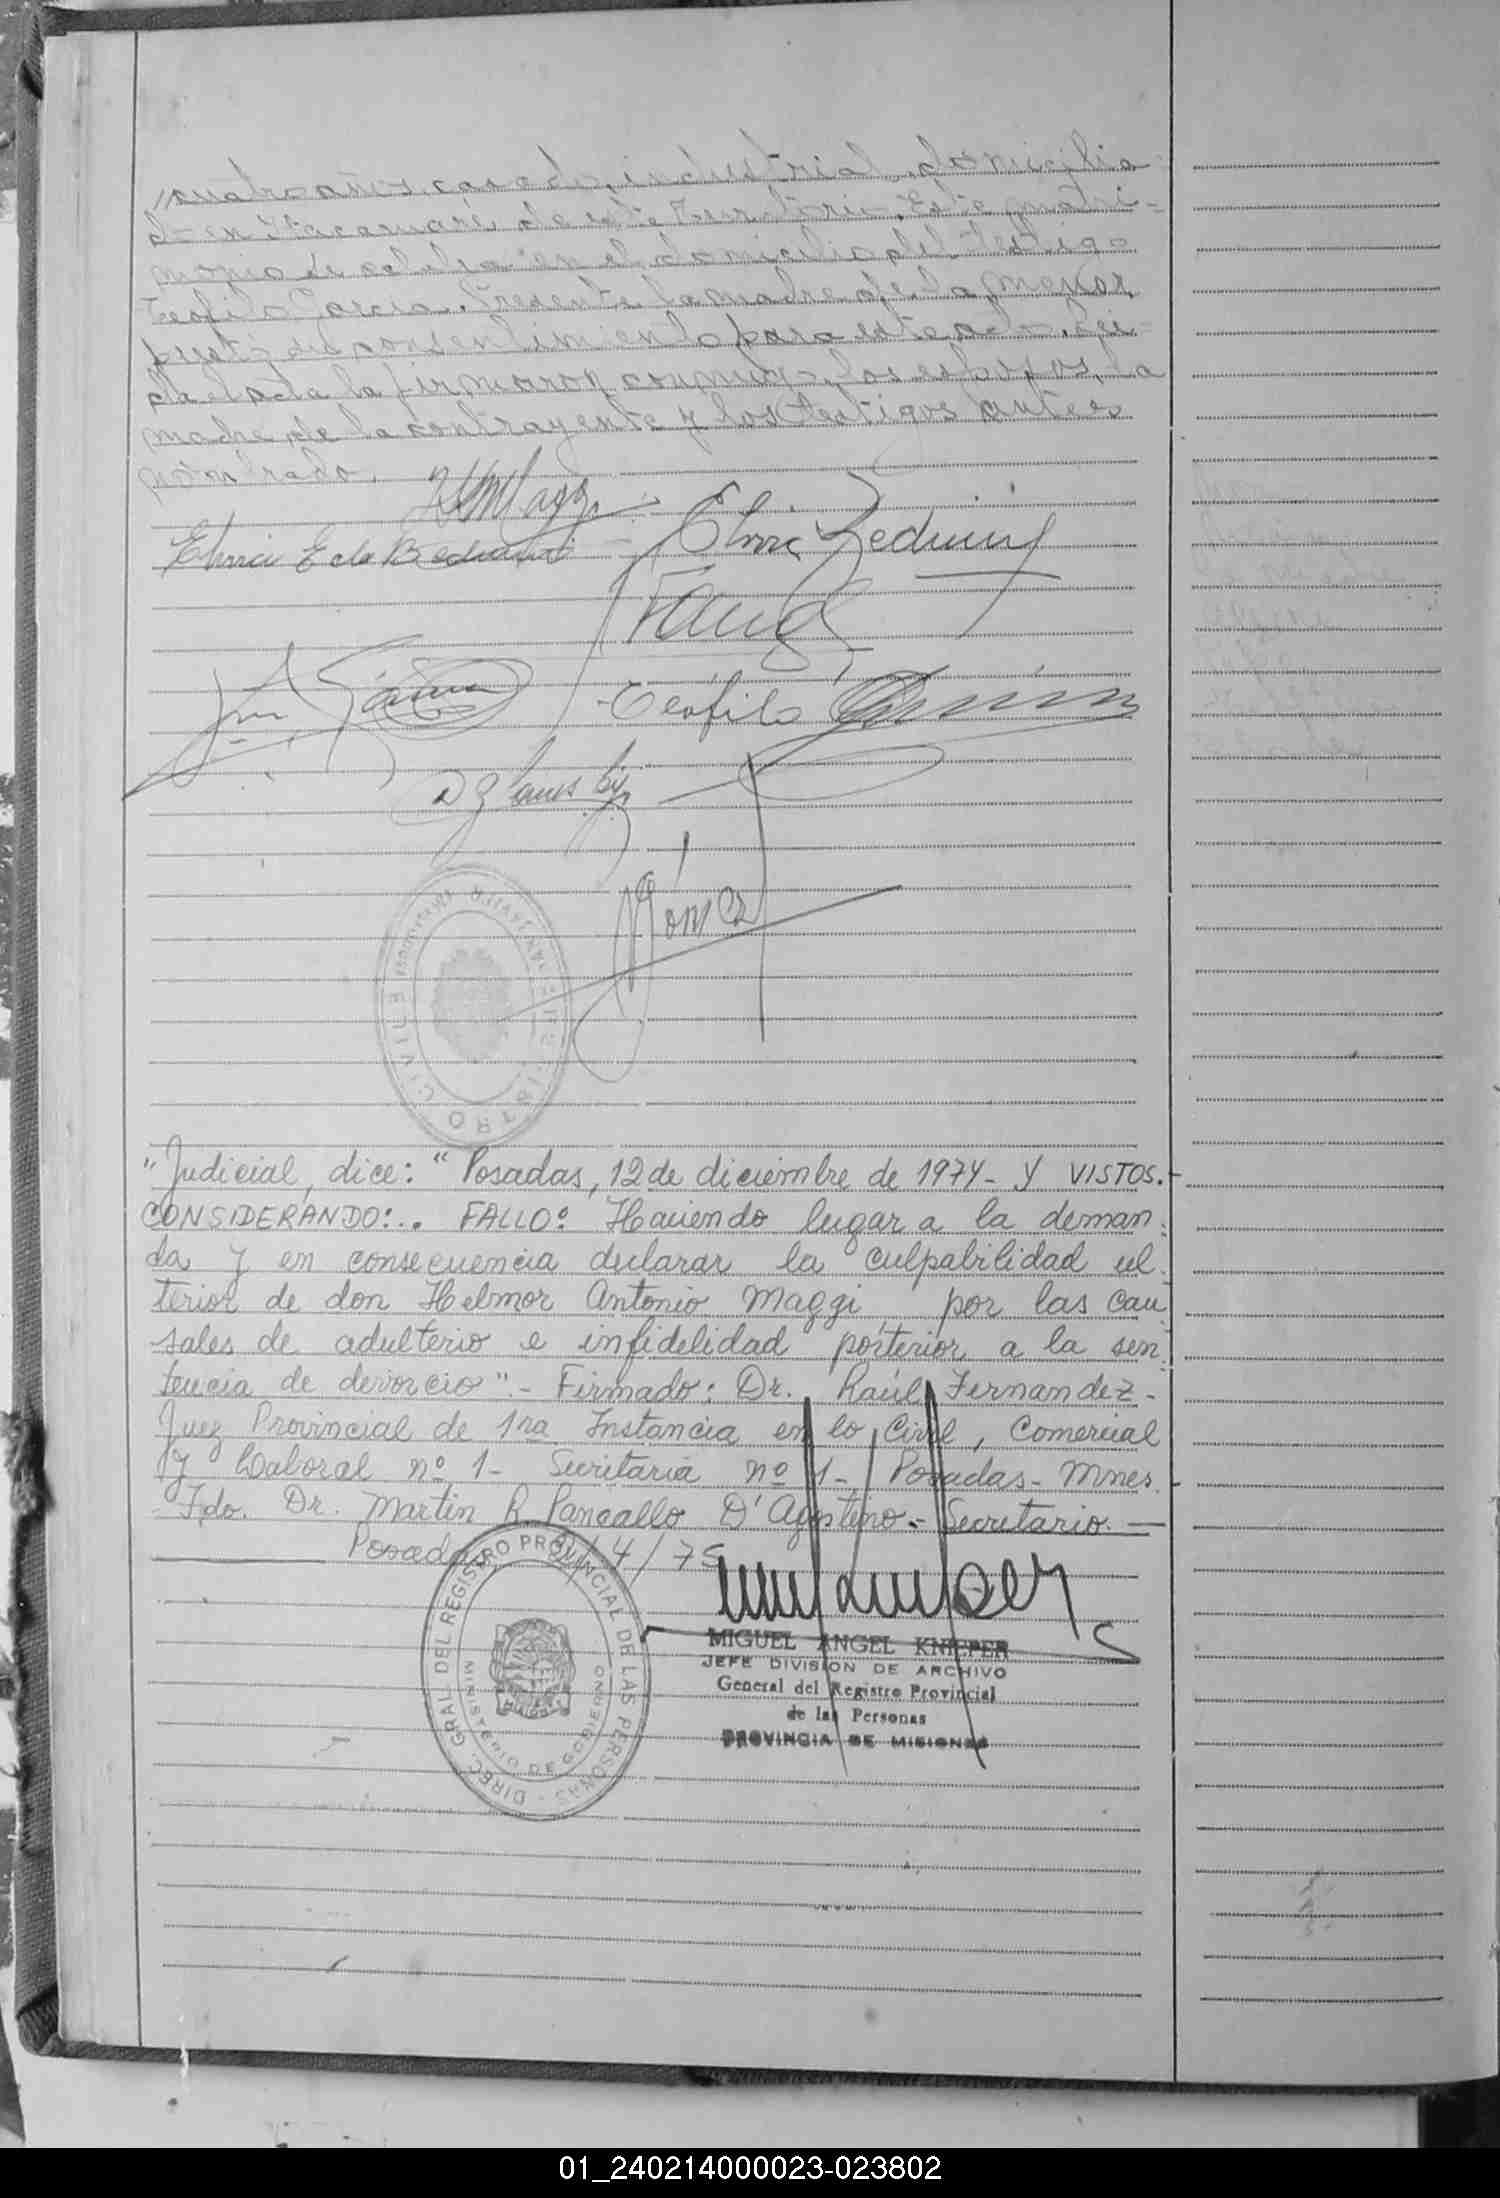 //cuatro años, casado, industrial, domicilia
do en Itacaruaré, de este Territorio. Este matri-
monio se celebra en el domicilio del testigo
Teofilo García. Presente la madre de la menor,
prestó su consentimiento para este acto. Leí-
da el acta la firmaron conmigo, los esposos, la
madre de la contrayente y los testigos antes
nombrado.
HAMaggi
Elvira E de Bedrinani
Elvira
Teófilo
Gómez
REGISTRO CIVIL
"Judicial, dice: "Posadas, 12 de diciembre de 1974- Y VISTOS.-
CONSIDERANDO:.. FALLO: Haciendo lugar a la deman-
da y en consecuencia declarar la culpabilidad ul-
terior de don Helmor Antonio Maggi por las cau
sales de adulterio e infidelidad pósterior a la sen-
tencia de devorcio".- Firmado: Dr. Raúl Fernandez-
Juez Provincial de 1ra Instancia en lo Civil, Comercial
y Laboral nº 1- Secritaria nº 1- Posadas- Mnes.-
- Fdo. Dr. Martin R. Pancallo D'Agostino.- Secretario.-
Posadas, /4/75
DIREC. GRAL. DEL REGISTRO PROVINCIAL DE LAS PERSONAS
MINISTERIO DE GOBIERNO
MIGUEL ANGEL KNIEPER
JEFE DIVISION DE ARCHIVO
General del Registro Provincial
de las Personas
PROVINCIA DE MISIONES
01_240214000023-023802